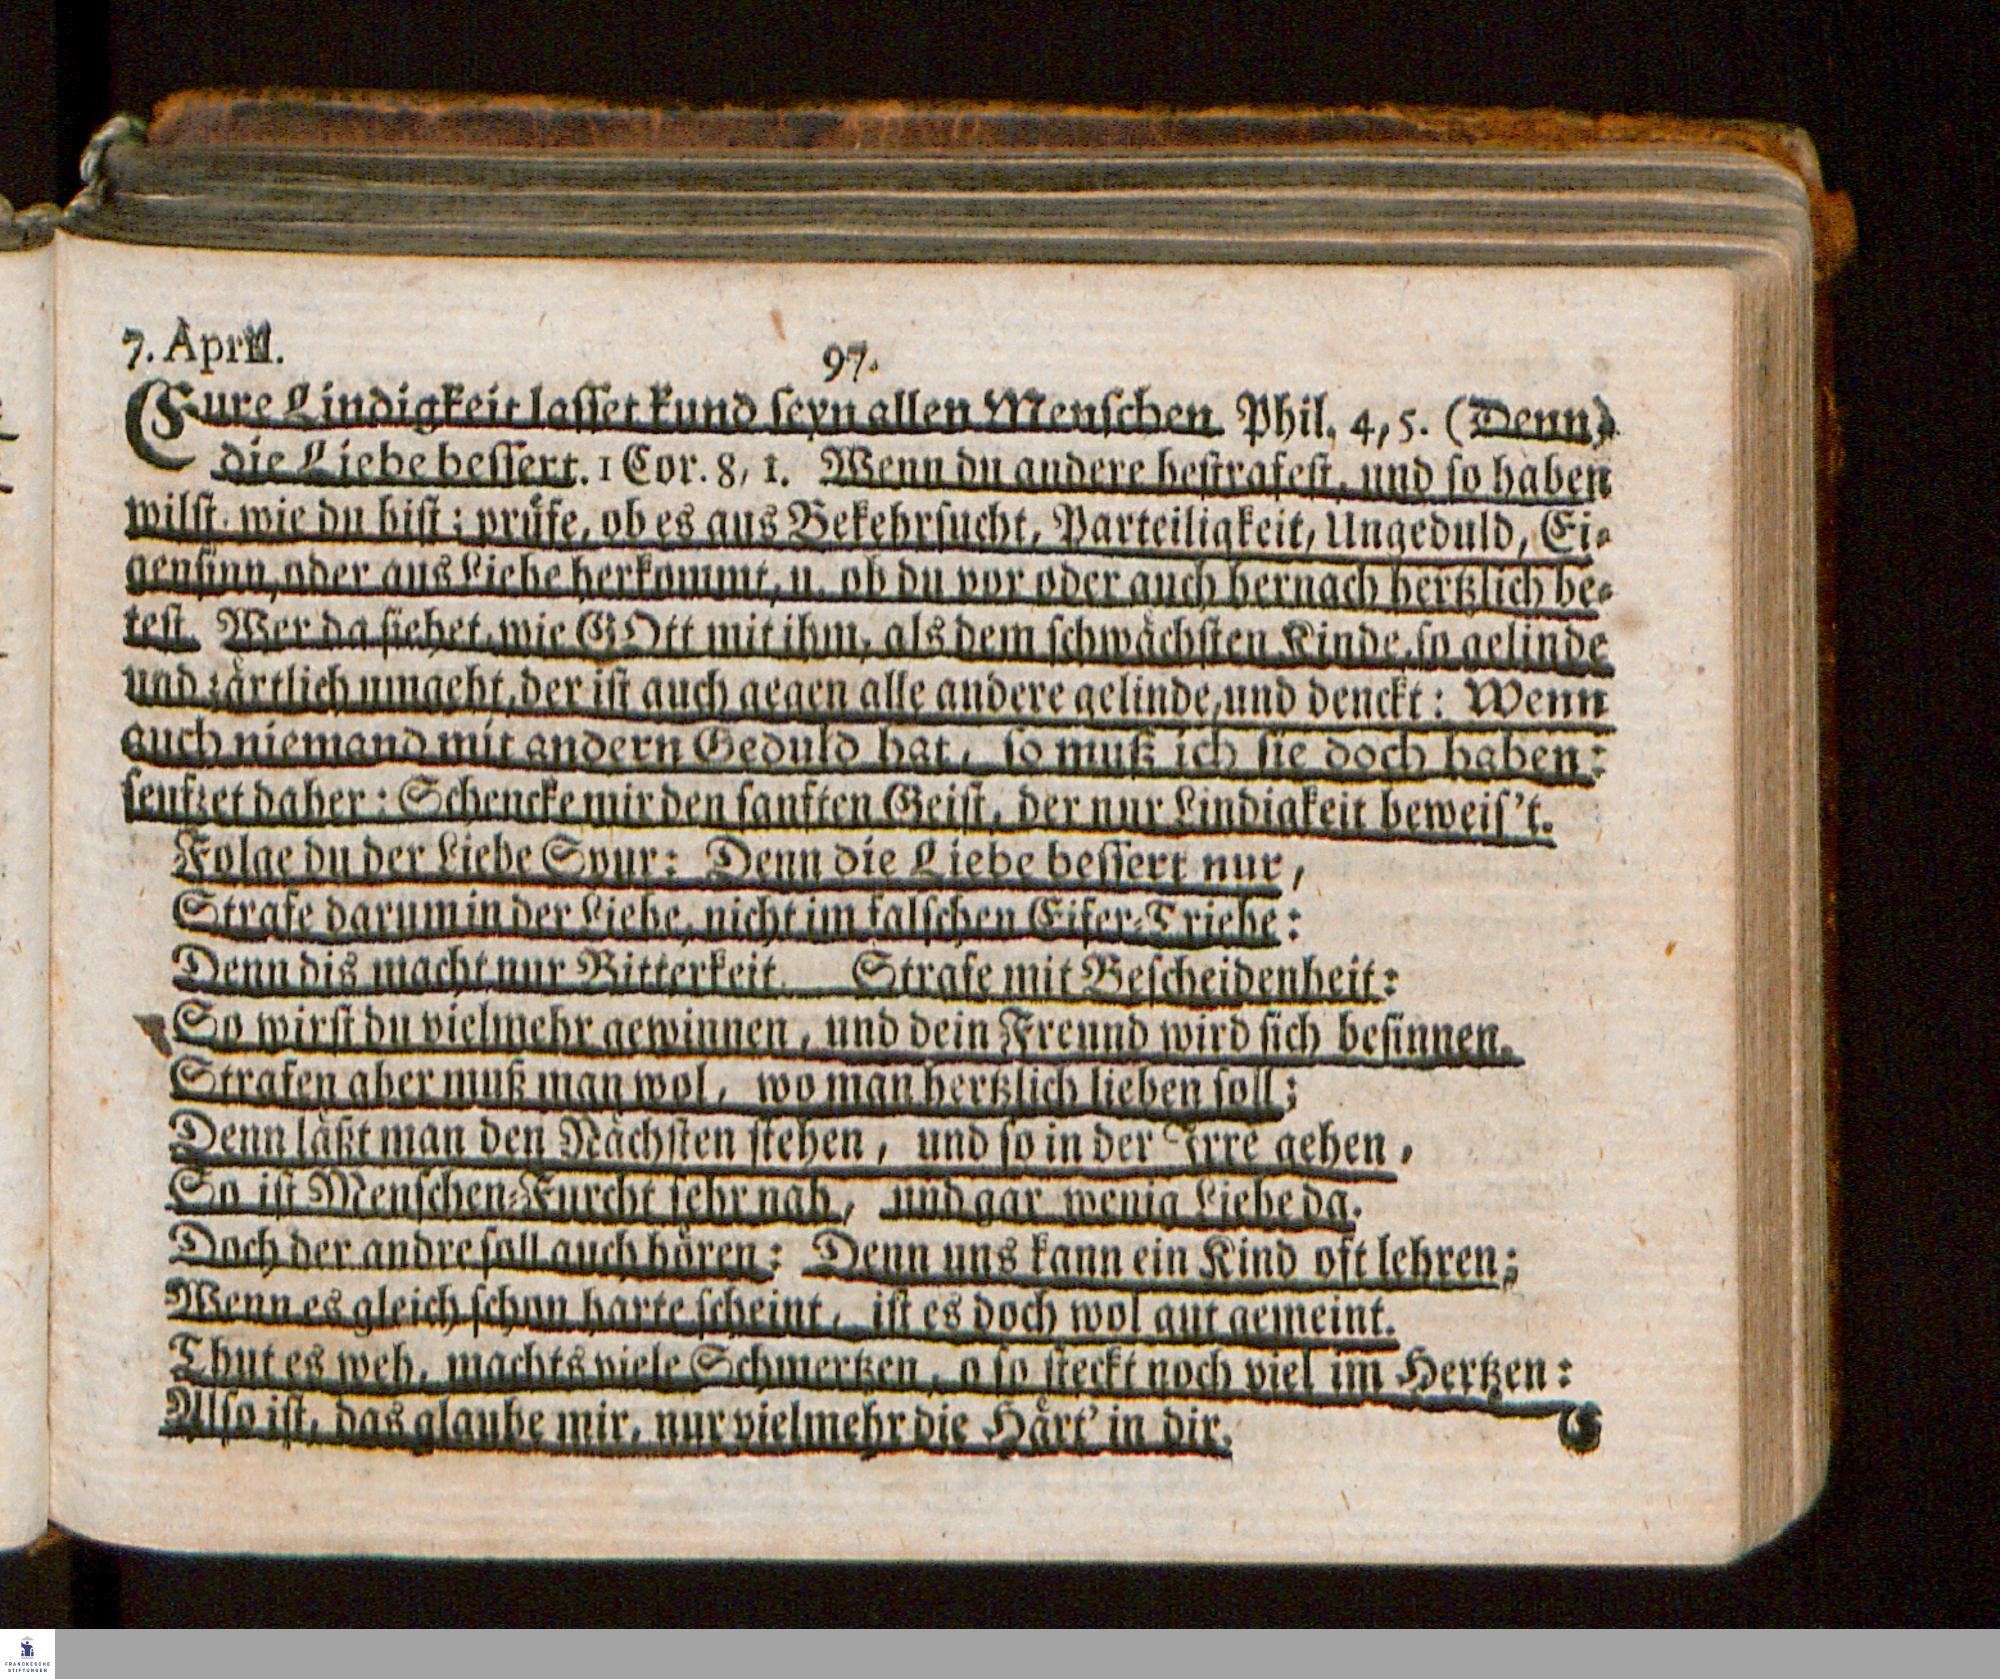 7. April.
97.
Eure Lindigkeit lasset kund seyn allen Menschen Phil. 4, 5. (Denn)
die Liebe bessert. 1 Cor. 8, 1. Wenn du andere bestrafest, und so haben
wilst, wie du bist; prüfe, ob es aus Bekehrsucht, Parteiligkeit, Ungeduld, Ei-
gensinn, oder aus Liebe herkommt, u. ob du vor oder auch hernach hertzlich be-
test. Wer da siehet, wie GOtt mit ihm, als dem schwächsten Kinde, so gelinde
und zärtlich umgeht, der ist auch gegen alle andere gelinde, und denckt: Wenn
auch niemand mit andern Geduld hat, so muß ich sie doch haben;
seufzet daher: Schencke mir den sanften Geist, der nur Lindigkeit beweis't.
Folge du der Liebe Spur: Denn die Liebe bessert nur,
Strafe darum in der Liebe, nicht im falschen Eifer-Triebe:
Denn dis macht nur Bitterkeit. Strafe mit Bescheidenheit:
So wirst du vielmehr gewinnen, und dein Freund wird sich besinnen.
Strafen aber muß man wol, wo man hertzlich lieben soll;
Denn läßt man den Nächsten stehen, und so in der Irre gehen,
So ist Menschen-Furcht sehr nah, und gar wenig Liebe da.
Doch der andre soll auch hören: Denn uns kann ein Kind oft lehren;
Wenn es gleich schon harte scheint, ist es doch wol gut gemeint.
Thut es weh, machts viele Schmertzen, o so steckt noch viel im Hertzen:
Also ist, das glaube mir, nur vielmehr die Härt' in dir.
FRANCKESCHE
STIFTUNGEN